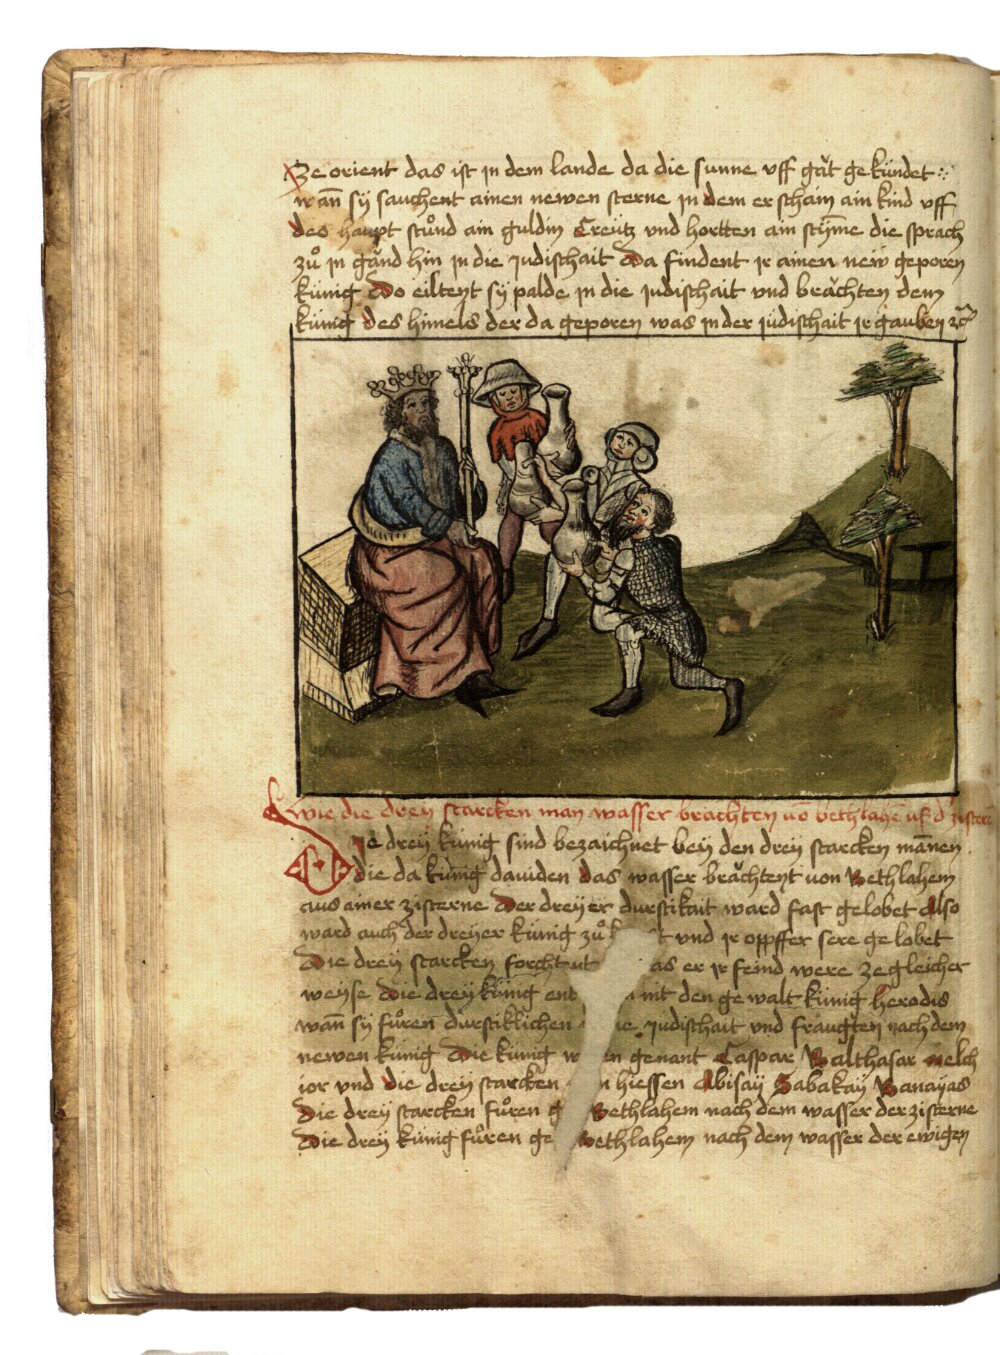 Ze orient das ist in dem lande da die sunne vff găt gekündet
wañ sÿ sauchent ainen newen sterne in dem erschain ain kind vff
des haupt stůnd ain guldin Creütz vnd hortten ain stÿm̄e die sprach
zů in gănd hin in die judischait Da findent ir ainen new geporen
künig Do eiltent sÿ palde in die judischait vnd brăchten dem
künig des himels der da geporen was in der judischait ir gauben ⁊c̃
Wie die dreÿ starcken man wasser brachten vō bethlahē vſ d' zistern
Die dreÿ künig sind bezaichnet beÿ den dreÿ starcken mānen
die da künig dauiden das wasser brăchtent von Bethlahem
aus ainer zisterne Der dreÿer durstikait ward fast gelobet Also
ward auch der dreÿer künig zů t vnd ir oppffer sere gelobet
Die dreÿ starcken forchtent as er ir feind were ze gleicher
weÿse Die dreÿ künig ent nit den gewalt künig herodis
wañ sÿ fůren durstiklichen ie judischait vnd fraugten nach dem
newen künig Die künig w en genant Caspar Balthasar Melch
ior vnd die dreÿ starcken n hiessen Abisaÿ Sabakaÿ Banaÿas
Die dreÿ starcken fůren g Bethlahem nach dem wasser der zisterne
Die dreÿ künig fůren ge Bethlahem nach dem wasser der ewigen